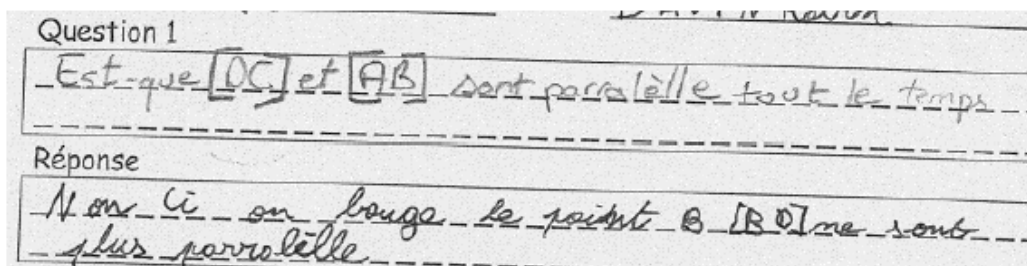 Question 1
Est-que [DC] et [AB] sont parralèlle tout le temps
Réponse
Non Ci on bouge le point B [BD] ne sont
plus parrolèlle